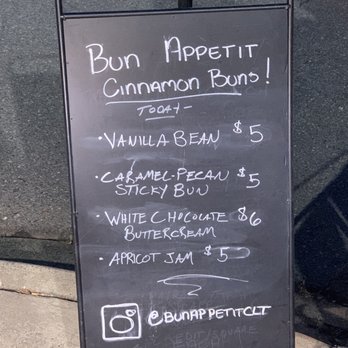 BUN APPETIT
CINNAMON BUNS!
TODAY-
• VANILLA BEAN $5
• CARAMEL-PECAN $5
STICKY BUN
• WHITE CHOCOLATE $6
BUTTERCREAM
• APRICOT JAM $5
@BUNAPPETITCLT